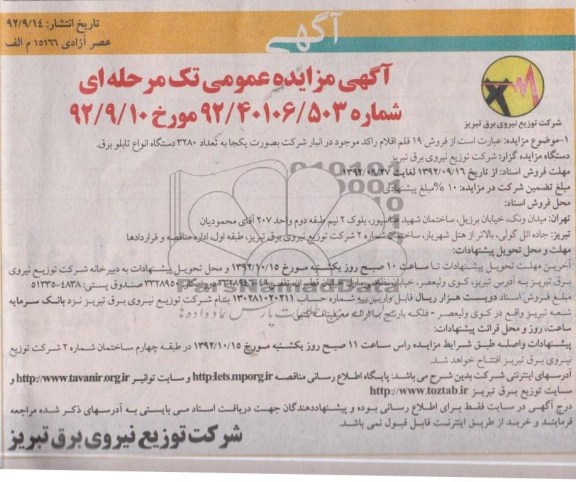 تاریخ انتشار: ۹۲/۹/۱۴
عصر آزادی ۱۵۱۶۶ م الف
آگهی
آگهی مزایده عمومی تک مرحله ای
شماره ۹۲/۴۰۱۰۶/۵۰۳ مورخ ۹۲/۹/۱۰
شرکت توزیع نیروی برق تبریز
۱-موضوع مزایده: عبارت است از فروش ۱۹ قلم اقلام راکد موجود در انبار شرکت بصورت یکجا به تعداد ۳۲۸۰ دستگاه انواع تابلو برق.
دستگاه مزایده گزار: شرکت توزیع نیروی برق تبریز
مهلت فروش اسناد: از تاریخ ۱۳۹۲/۰۹/۱۶ لغایت ۱۳۹۲/۰۹/۲۷
مبلغ تضمین شرکت در مزایده: ۱۰ %مبلغ پیشنهادی
محل فروش اسناد:
تهران: میدان ونک، خیابان برزیل، ساختمان شهید عباسپور، بلوک ۲ نیم طبقه دوم واحد ۲۰۷ آقای محمودیان
تبریز: جاده ائل گولی، بالاتر از هتل شهریار، ساختمان شماره ۲ شرکت توزیع نیروی برق تبریز، طبقه اول، اداره مناقصه و قراردادها
مهلت و محل تحویل پیشنهادات:
آخرین مهلت تحویل پیشنهادات تا ساعت ۱۰ صبح روز یکشنبه مورخ ۱۳۹۲/۱۰/۱۵ و محل تحویل پیشنهادات به دبیرخانه شرکت توزیع نیروی
برق تبریز به آدرس تبریز، کوی ولیعصر، خیابان صندوق پستی: ۴۸۳۸-۵۱۳۳۵
مبلغ فروش اسناد دویست هزار ریال قابل واریز به شماره حساب ۱۳۰۲۸۱۰۲۰۲۱۱ بنام شرکت توزیع نیروی برق تبریز نزد بانک سرمایه
شعبه تبریز واقع در کوی ولیعصر - فلکه بارنج با ارائه معرفینامه کتبا
ساعت، روز و محل قرائت پیشنهادات:
پیشنهادات واصله طبق شرایط مزایده راس ساعت ۱۱ صبح روز یکشنبه مورخ ۱۳۹۲/۱۰/۱۵ در طبقه چهارم ساختمان شماره ۲ شرکت توزیع
نیروی برق تبریز افتتاح خواهد شد.
آدرسهای اینترنتی شرکت بدین شرح می باشد: پایگاه اطلاع رسانی مناقصه http:lets.mporg.ir و سایت توانیر http://www.tavanir.org.ir و
سایت توزیع برق تبریز http://www.toztab.ir
درج آگهی در سایت فقط برای اطلاع رسانی بوده و پیشنهاددهندگان جهت دریافت اسناد می بایستی به آدرسهای ذکر شده مراجعه
فرمایند و خرید از طریق اینترنت قابل قبول نمی باشد.
شرکت توزیع نیروی برق تبریز